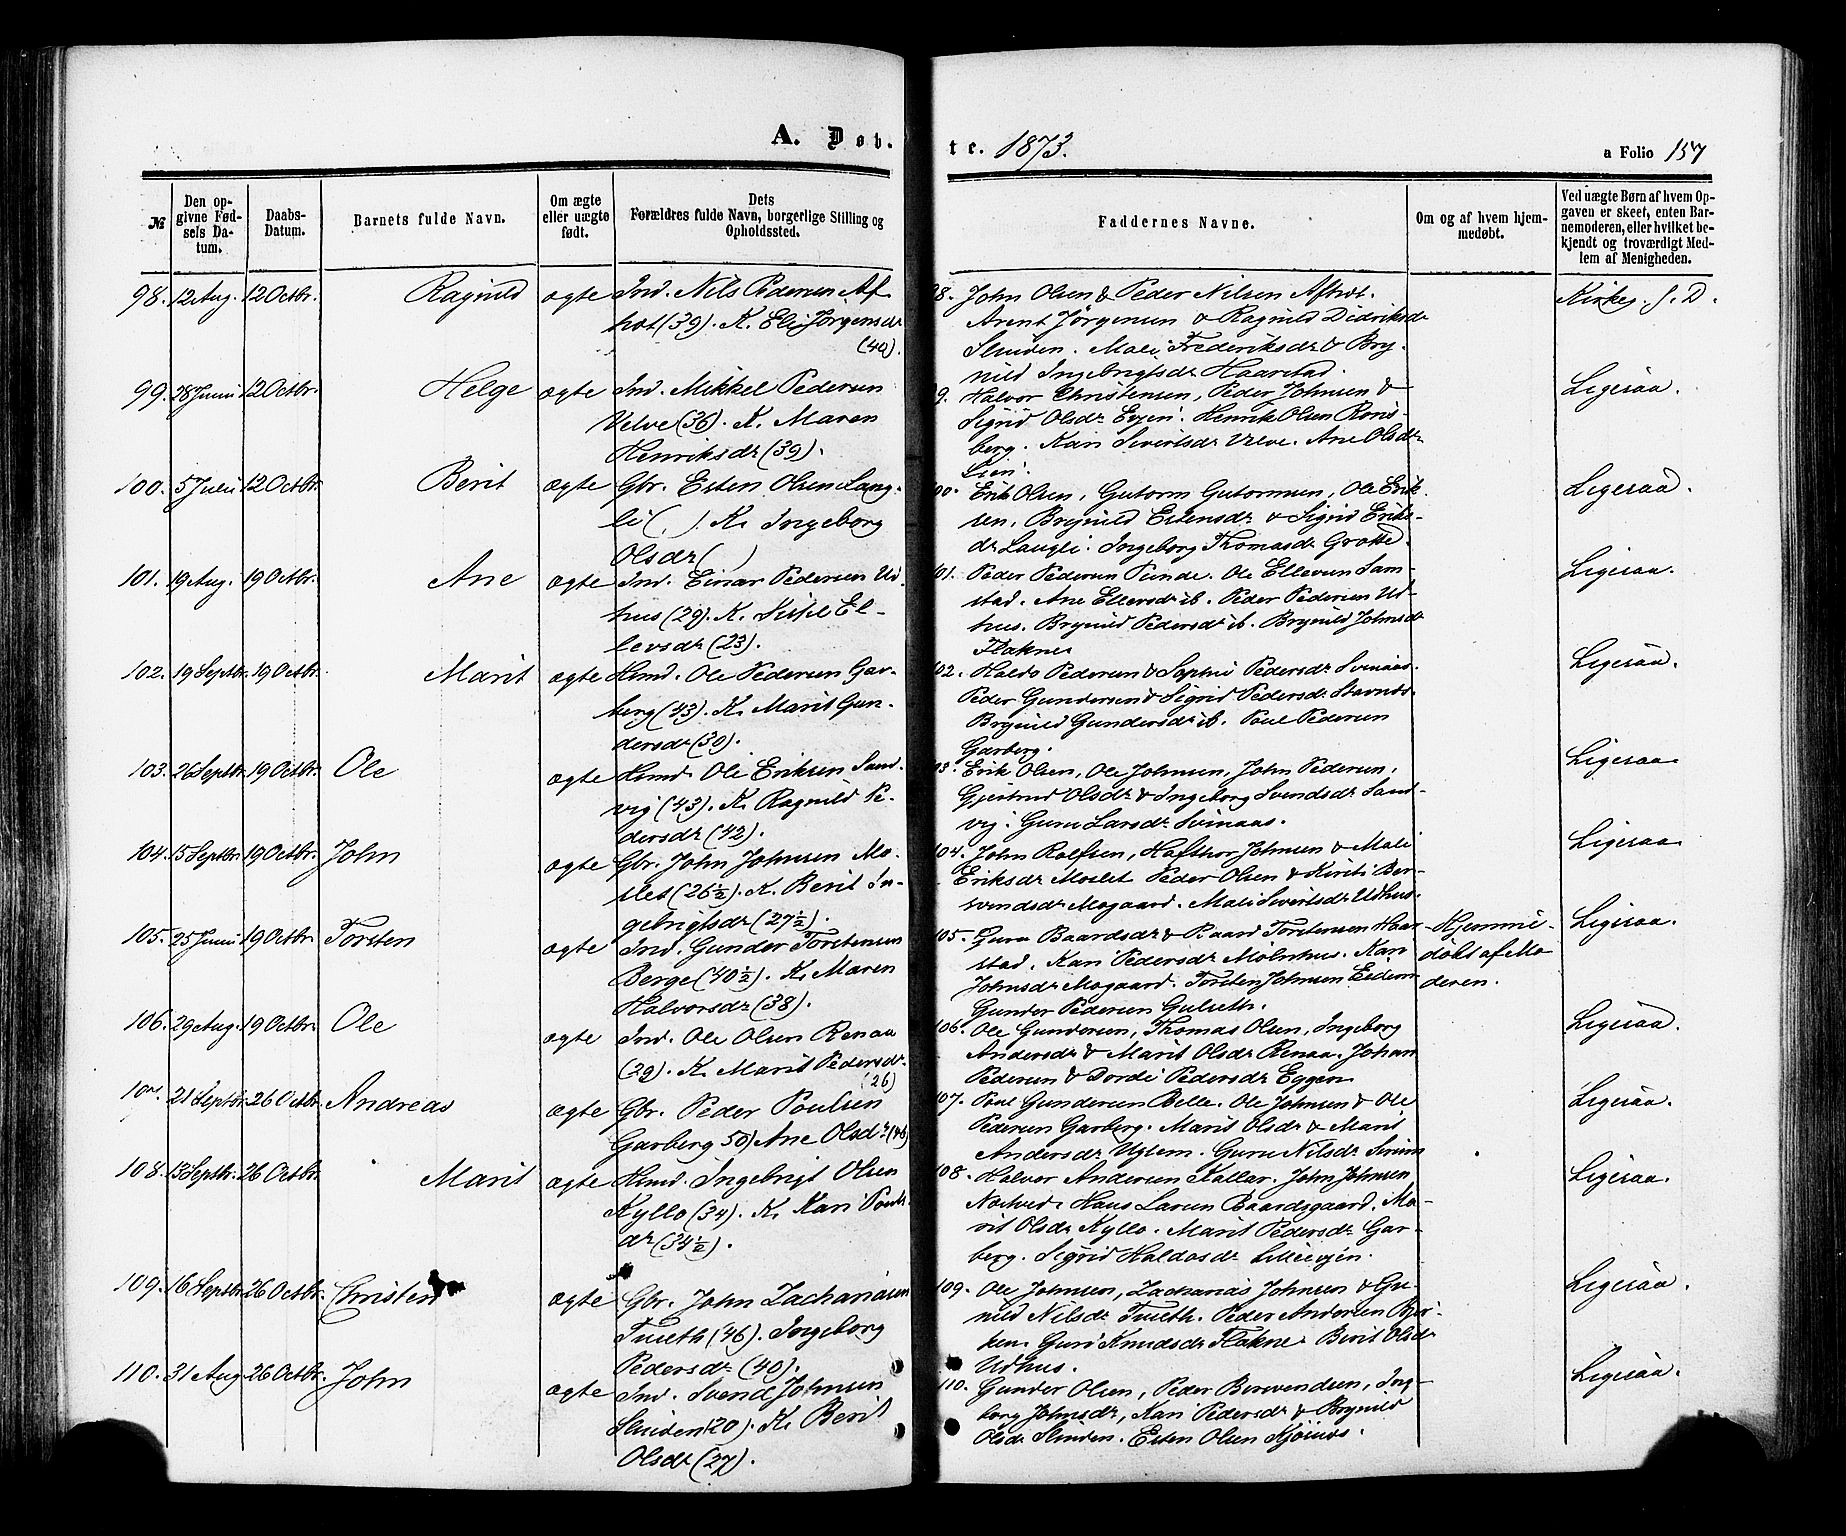 A. Døb.
te. 1873.
a Folio 157
№
Den op-
givne Fød-
sels Da-
tum.
Daabs-
Datum.
Barnets fulde Navn.
Om ægte
eller uægte
født.
Dets
Forældres fulde Navn, borgerlige Stilling og
Opholdssted.
Faddernes Navne.
Om og af hvem hjem-
medøbt.
Ved uægte Børn af hvem Op-
gaven er skeet, enten Bar-
nemoderen, eller hvilket be-
kjendt og troværdigt Med-
lem af Menigheden.
98. 12 Aug. 12 Octbr. Ragnild ægte Ind. Nils Pedersen Af
hot (39). K. Eli Jørgensdr
(40).
98. John Olsen & Peder Nilsen Afhot.
Arent Jørgensen & Ragnild Didriksdr
Slinden. Mali Frederiksdr & Bry-
nild Ingebrigtsdr Haarstad.
Kirkeg. s. D.
99. 28 Juni 12 Octbr. Helge ægte Ind. Mikkel Pedersen
Velve (36). K. Maren
Henriksdr (39).
9. Halvor Christensen, Peder Johnsen &
Sigrid Olsdr Evjen. Henrik Olsen Rons-
berg. Kari Sivertsdr Velve. Ane Olsdr
Lien.
Ligesaa.
100. 5 Juli 12 Octbr. Berit ægte Gbr. Esten Olsen Lang-
li ( ) K. Ingeborg
Olsdr ( )
00. Erik Olsen, Gutorm Gutormsen, Ole Erik-
sen, Brynild Estensdr & Sigrid Eriks-
dr Langli. Ingeborg Thomasdr Grotte.
Ligesaa.
101. 19 Aug. 19 Octbr. Ane ægte Ind. Einar Pedersen Ud-
hus (29). K. Sissel El-
levsdr (23).
01. Peder Pedersen Punde. Ole Ellevsen Sam-
stad. Ane Ellevsdr ib. Peder Pedersen Ud-
hus. Brynild Pedersdr ib. Brynild Johnsdr
Flakne
Ligesaa.
102. 19 Septbr. 19 Octbr. Marit ægte Hmd. Ole Pedersen Gar-
berg (43). K. Marit Gun-
dersdr (30).
02. Haldo Pedersen & Sophie Pedersdr Svinaas.
Peder Gundersen & Sigrid Pedersdr Stavnes.
Brynild Gundersdr ib. Poul Pedersen
Garberg.
Ligesaa.
103. 26 Septbr. 19 Octbr. Ole ægte Hmd. Ole Eriksen Sand-
vig (43). K. Ragnild Pe-
dersdr (42).
03. Erik Olsen, Ole Johnsen, John Pedersen,
Gjertrud Olsdr & Ingeborg Svendsdr Sand-
vig. Guru Larsdr Svinaas.
Ligesaa
104. 15 Septbr. 19 Octbr. John ægte Gbr. John Johnsen Mo-
slet (26½). K. Berit In-
gebrigtsdr (27½).
104. John Rolfsen, Hafthor Johnsen & Mali
Eriksdr Moslet. Peder Olsen & Kirsti Ber-
svendsdr Mogaard. Mali Sivertsdr Udhus.
Ligesaa
105. 25 Juni 19 Octbr. Torsten ægte Ind. Gunder Torstensen
Berge (40½). K. Maren
Halvorsdr (38).
105. Guru Baardsdr & Baard Torstensen Haar-
stad. Kari Pedersdr Mølnhus. Kari
Johnsdr Mogaard. Torsten Johnsen Eidem
Gunder Pedersen Gulseth.
Hjemme-
døbt af Mo
deren.
Ligesaa.
106. 29 Aug. 19 Octbr. Ole ægte Ind. Ole Olsen Renaa
(39). K. Marit Pedersdr
(26)
106. Ole Gundersen, Thomas Olsen, Ingeborg
Andersdr & Marit Olsdr Renaa. Johan
Pedersen & Dordi Pedersdr Eggen
Ligesaa.
107. 21 Septbr. 26 Octbr. Andreas ægte Gbr. Peder Poulsen
Garberg 50) Ane Olsdr (46)
107. Poul Gundersen Belle. Ole Johnsen & Ole
Pedersen Garberg. Marit Olsdr & Marit
Andersdr Uglem. Guru Nilsdr
Ligesaa.
108. 13 Septbr. 26 Octbr. Marit ægte Hmd. Ingebrigt Olsen
Kyllo (34). K. Kari Pouls
dr (34½).
108. Halvor Andersen Kallar. John Johnsen
Norved. Hans Larsen Baardsgaard. Ma-
rit Olsdr Kyllo. Marit Pedersdr Gar-
berg. Sigrid Haldosdr Lilleevjen.
Ligesaa.
109. 16 Septbr. 26 Octbr. Christen ægte Gbr. John Zachariasen
Tuseth (46). Ingeborg
Pedersdr (40).
109. Ole Johnsen, Zacharias Johnsen & Gu-
nild Nilsdr Tuseth. Peder Andersen Bjer-
ken. Guri Knudsdr Flakne. Berit Olsdr
Udhus.
Ligesaa.
110. 31 Aug 26 Octbr. John ægte Ind. Svend Johnsen
Slinden (20). K. Berit
Olsdr (27).
110. Gunder Olsen, Peder Bersvendsen, Inge-
borg Johnsdr, Kari Pedersdr & Brynild
Olsdr Slinden. Esten Olsen Kjøsnes.
Ligesaa.